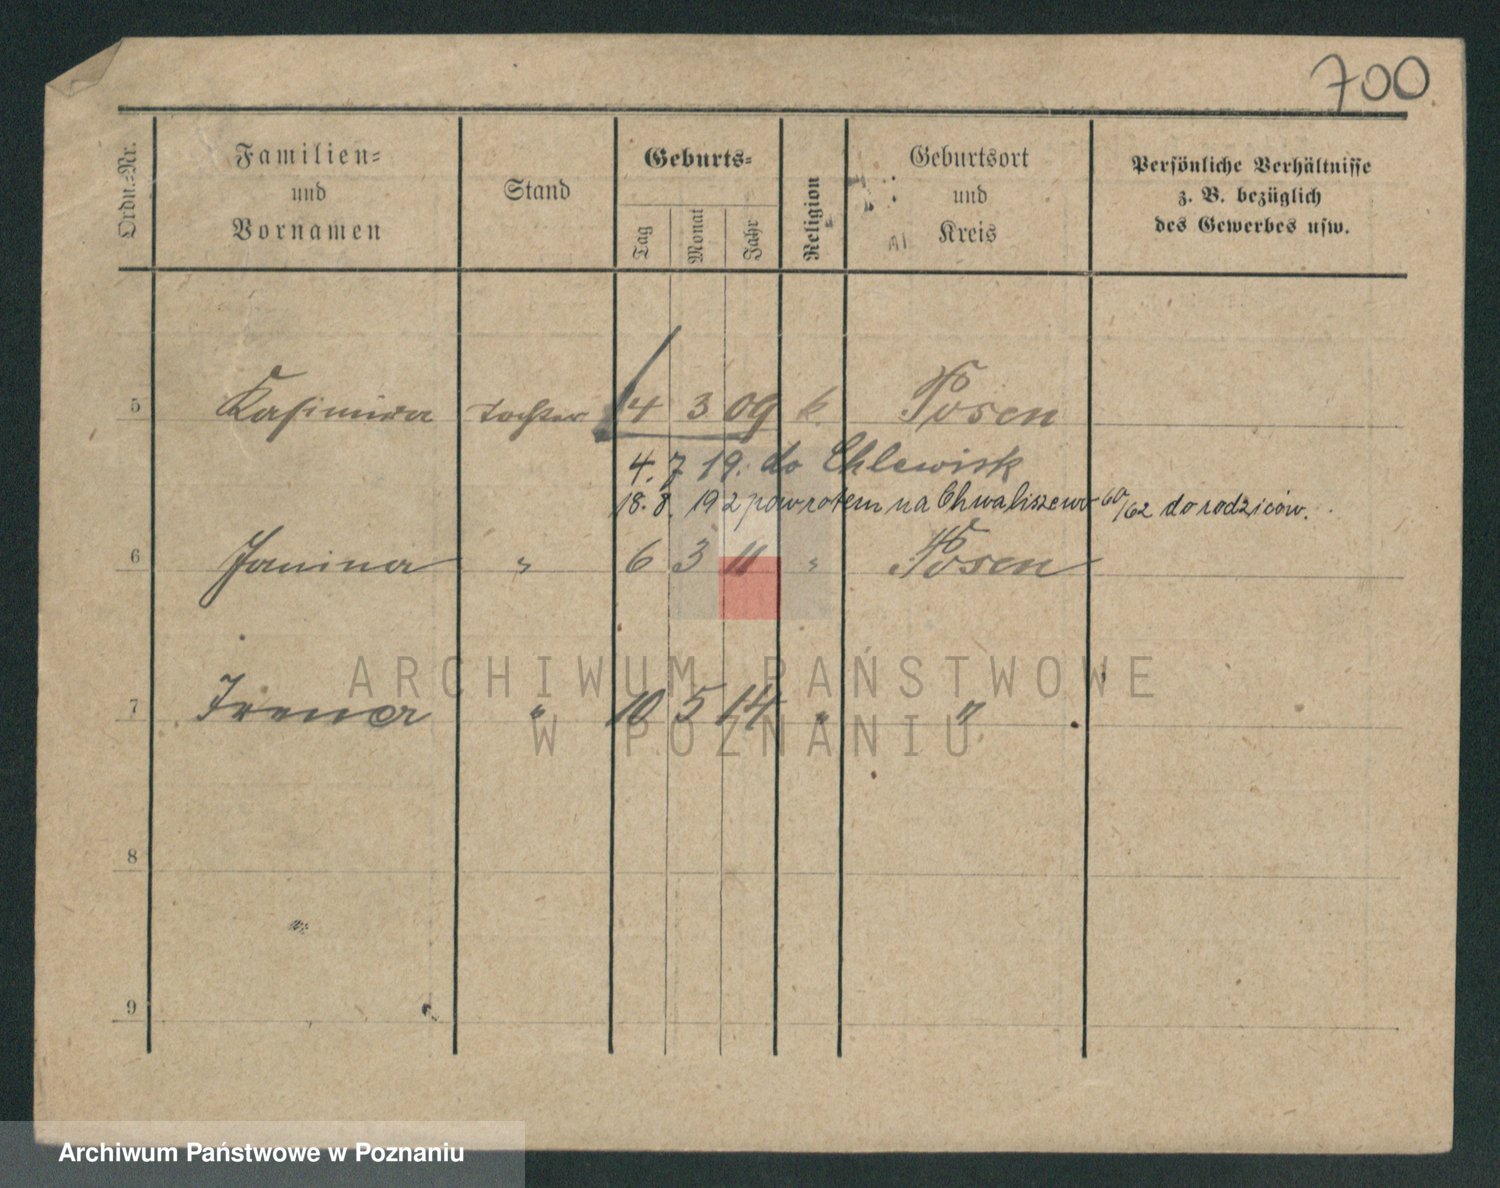 700
Ordn.-Nr.
Familien-
und
Vornamen
Stand
Geburts-
Tag
Monat
Jahr
Religion
Geburtsort
und
Kreis
Persönliche Verhältnisse
z. B. bezüglich
des Gewerbes usw.
5 Kasimira Tochter 14 3 09 k. Posen
4. 7 19. do Chlewisk
18. 8. 192 powrotem na Chwaliszewo 60/62 do rodziców.
6 Janina " 6 3 11 " Posen
ARCHIWUM PAŃSTWOWE
7 Irena " 10 5 14 " "
W POZNANIU
8
9
Archiwum Państwowe w Poznaniu